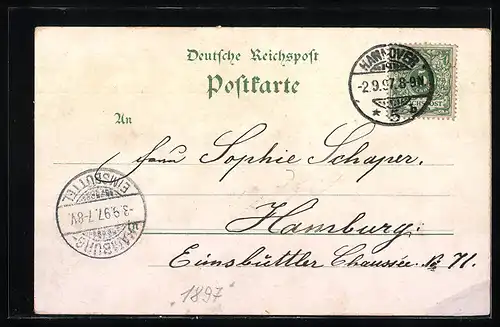 Deutsche Reichspost
Postkarte
HANNOVER
-2.9.97.8-9N.
* 5 b
An
Sophie Schaper.
Hamburg.
Eimsbüttler Chaussée. No 71.
HAMBURG-
EIMSBÜTTEL
-3.9.97.7-8V.
1897